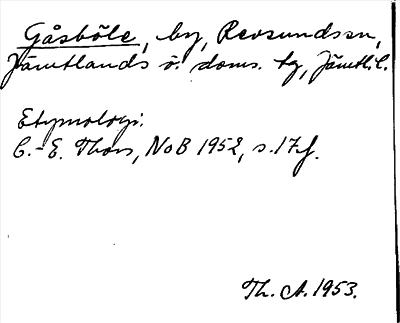 Gåsböle, by, Revsunds sn,
Jämtlands ö. doms. tg, Jämtl. l.
Etymologi:
C.-E. Thors, NoB 1952, s. 17 f.
Th. A. 1953.